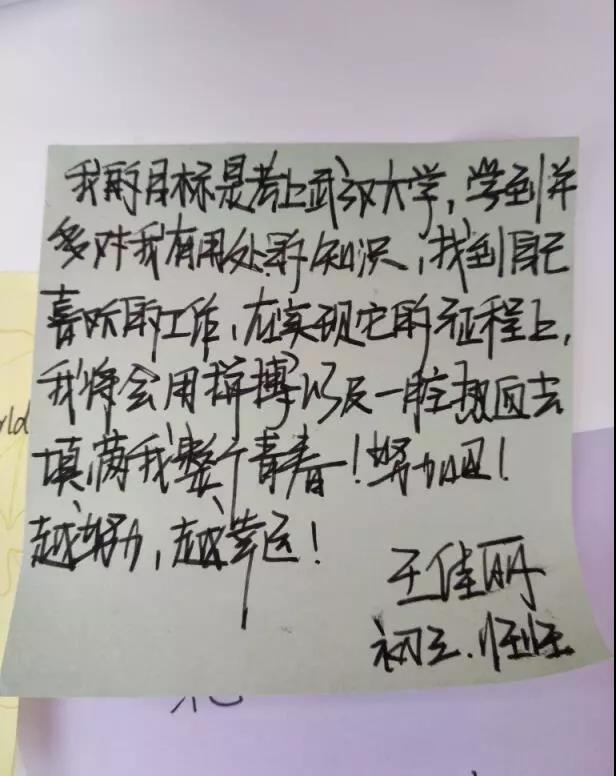 我的目标是考上武汉大学，学到许
多对我有用处的知识，找到自己
喜欢的工作，在实现它的征程上，
我将会用拼搏以及一腔热血去
填满我整个青春！努力吧！
越努力，越幸运！
王佳丽
初三.
rld